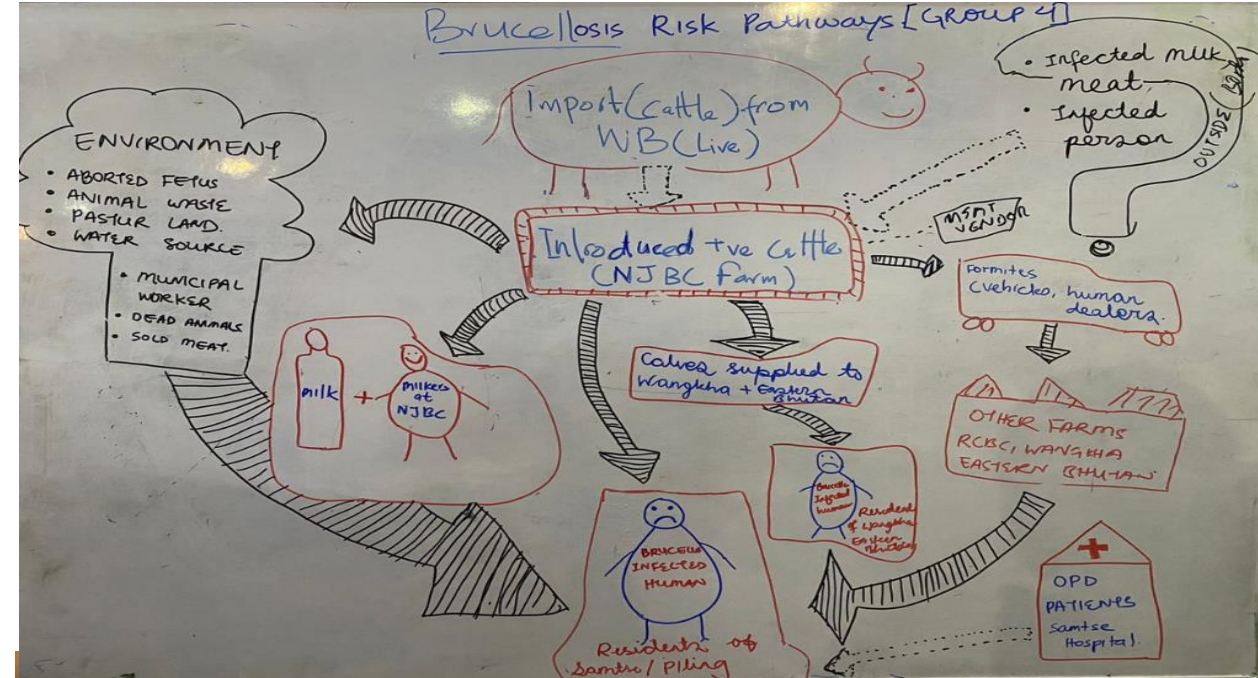 Brucellosis Risk Pathways [GROUP 4]
Import (cattle) from
WB (Live)
• Infected milk
meat
• Infected
person
OUTSIDE
ENVIRONMENT
• ABORTED FETUS
• ANIMAL WASTE
• PASTUR LAND.
• WATER SOURCE
• MUNICIPAL
WORKER
• DEAD ANIMALS
• SOLD MEAT.
Introduced +ve Cattle
(NJBC Farm)
VENDOR
Formites
(vehicles, human
dealers.
milk
+
milkers
at
NJBC
Calves supplied to
Wangkha + Eastern
Bhutan
OTHER FARMS
RCBC, WANGKHA
EASTERN BHUTAN
Brucella
Infected
human
Resident
of Wangkha
Eastern
BRUCELLA
INFECTED
HUMAN
Residents of
Samtse/
OPD
PATIENTS
Samtse
Hospital.